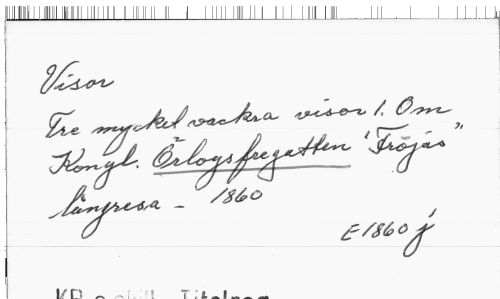 Visor
Tre mycket vackra visor 1. Om
Kongl. Örlogsfregatten "Fröjas"
långresa - 1860
E1860j
KB Titelreg